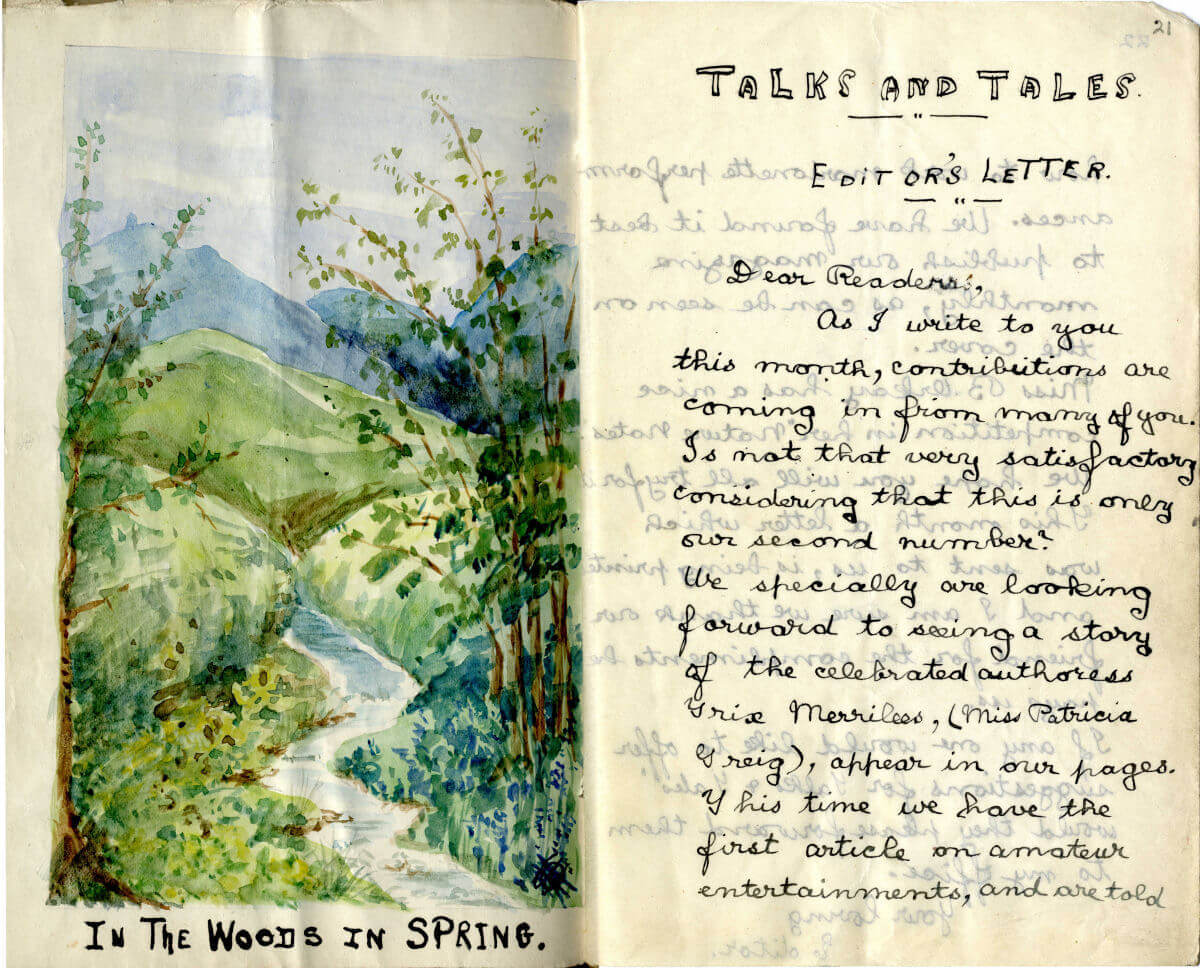 IN THE WOODS IN SPRING.
21
TALKS AND TALES.
EDITOR'S LETTER.
Dear Readers,
As I write to you
this month, contributions are
coming in from many of you.
Is not that very satisfactory
considering that this is only
our second number?
We specially are looking
forward to seeing a story
of the celebrated authoress
Trix Merrilees, (Miss Patricia
Greig), appear in our pages.
This time we have the
first article on amateur
entertainments, and are told